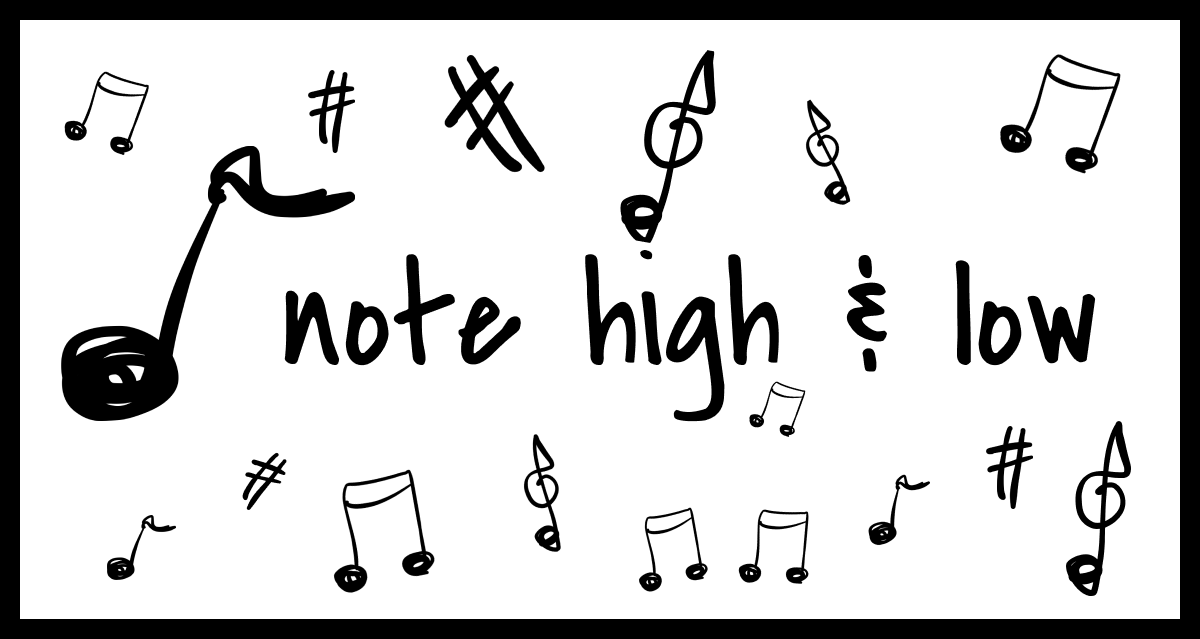 note high & low